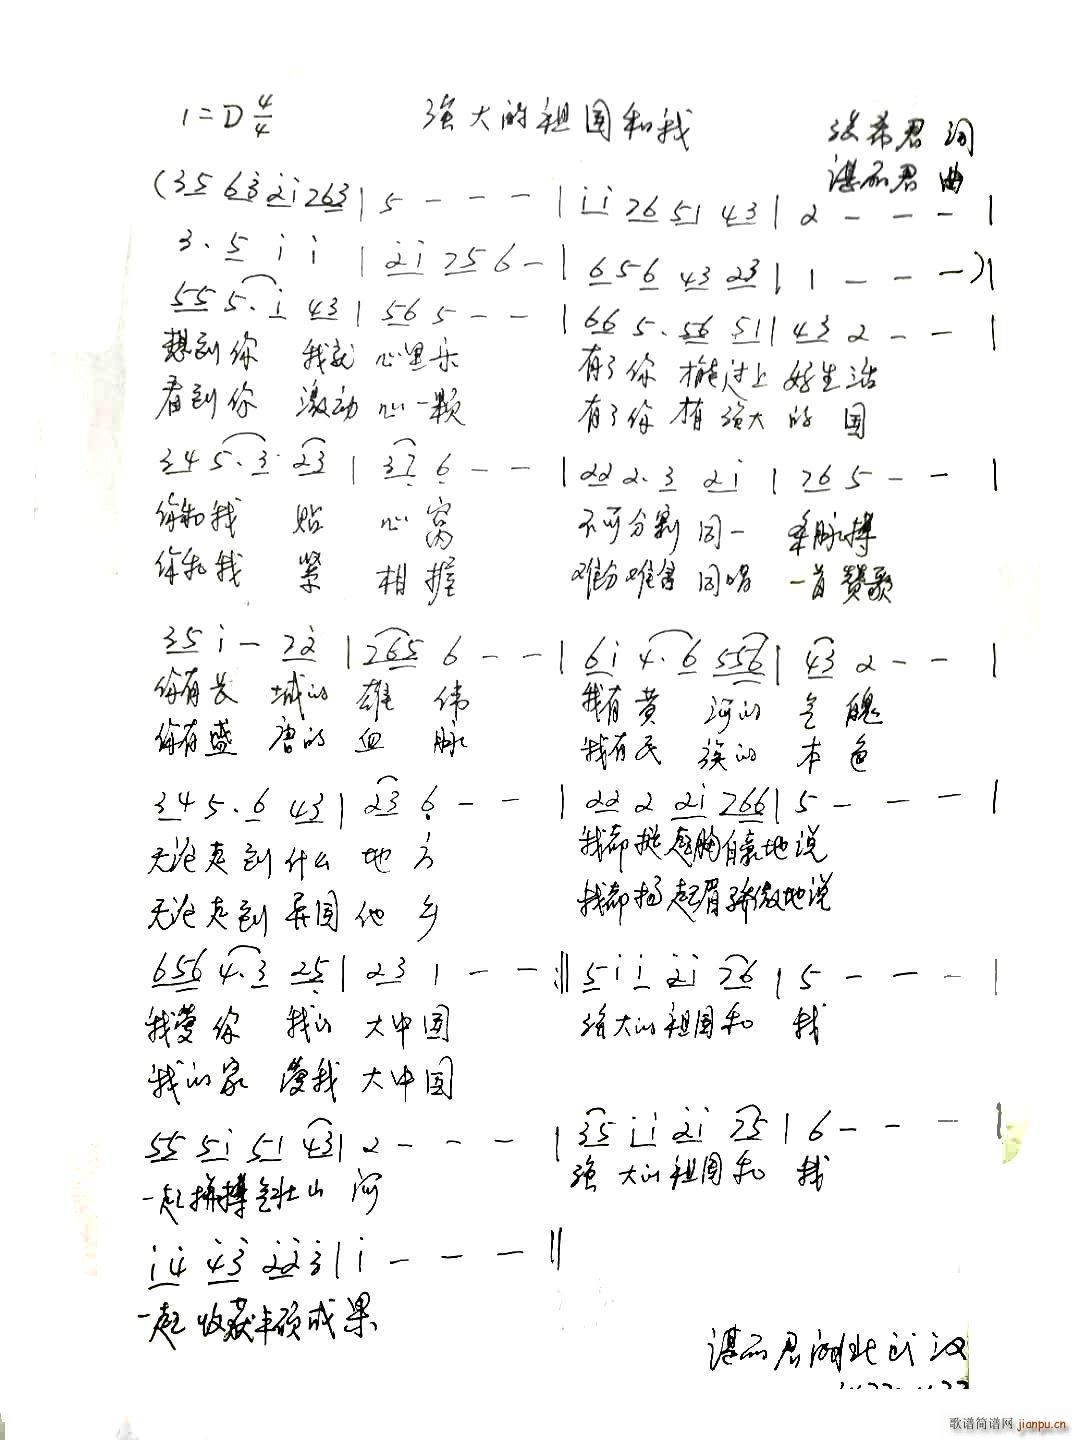 1=D 4/4 强大的祖国和我 张希君 词
湛丽君 曲
(35 63 2i 763 | 5 - - - | ii 76 51 43 | 2 - - - |
3. 5 i i | 2i 75 6 - | 656 43 23 | 1 - - -) |
55 5. i 43 | 56 5 - - | 66 5. 56 51 | 43 2 - - |
想到你 我就 心里乐 有了你 才能过上 好生活
看到你 激动 心一颗 有了你 才有强大 的 国
34 5. 3 23 | 37 6 - - | 22 2. 3 2i | 76 5 - - |
你和我 贴 心 窝 不可分割 同一 条脉搏
你和我 紧 相 握 难分难舍 同唱 一首赞歌
35 i - 72 | 765 6 - - | 6i 4. 6 556 | 43 2 - - |
你有长 城的 雄 伟 我有黄 河的 气 魄
你有盛 唐的 血 脉 我有民 族的 本 色
34 5. 6 43 | 23 6 - - | 22 2 2i 766 | 5 - - - |
无论走到什么 地 方 我都挺起胸自豪地说
无论走到异国 他 乡 我都扬起眉骄傲地说
656 4. 3 25 | 23 1 - - :‖ 5i i 2i 76 | 5 - - - |
我爱你 我的 大中国 强大的祖国和 我
我的家 爱我 大中国
55 5i 51 43 | 2 - - - | 35 ii 2i 75 | 6 - - - |
一起拼搏气壮山 河 强 大的祖国和 我
i4 43 223 | i - - - ‖
一起 收获丰硕成 果
湛丽君 湖北武汉
歌谱简谱网 jianpu.cn